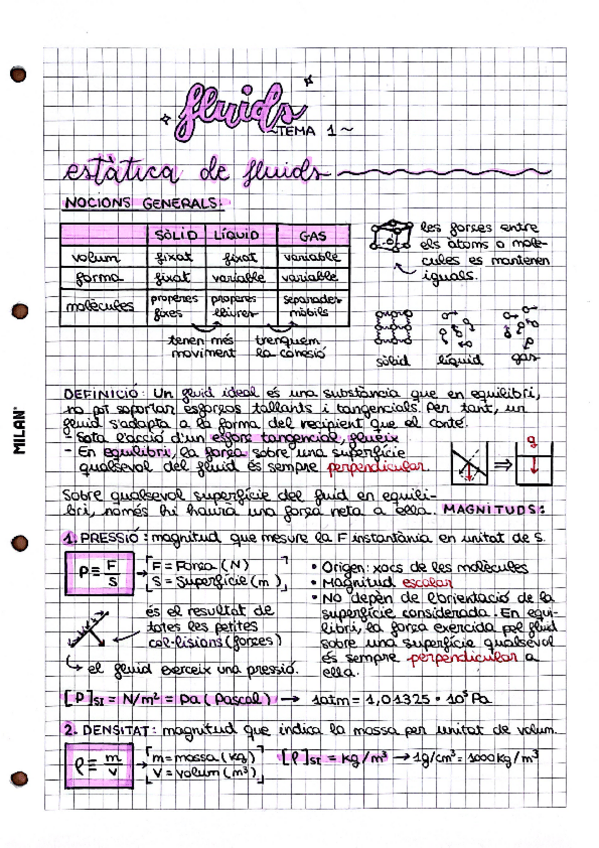 fluids
~TEMA 1~
estàtica de fluids
NOCIONS GENERALS:
SÒLID LÍQUID GAS
volum fixat fixat variable
forma fixat variable variable
molècules properes fixes properes lliures separades mòbils
tenen més moviment
trenquem la cohesió
les forses entre
els àtoms o molè-
cules es mantenen
iguals.
sòlid líquid gas
MILAN
DEFINICIÓ: Un fluid ideal és una substància que en equilibri,
no pot soportar esforços tallants i tangencials. Per tant, un
fluid s'adapta a la forma del recipient que el conté.
- Sota l'acció d'un esforç tangencial, flueix
- En equilibri, la força sobre una superfície
qualsevol del fluid és sempre perpendicular.
g
Sobre qualsevol superfície del fluid en equili-
bri, només hi haurà una força neta a ella. MAGNITUDS:
1. PRESSIÓ: magnitud que mesura la F instantània en unitat de S.
P ≡ F/S
F = Força (N)
S = Superfície (m )
és el resultat de
totes les petites
col·lisions (forces)
el fluid exerceix una pressió.
• Origen: xocs de les molècules
• Magnitud escalar
• No depèn de l'orientació de la
superfície considerada. En equi-
libri, la força exercida pel fluid
sobre una superfície qualsevol
és sempre perpendicular a
ella.
[P]SI = N/m² = Pa (Pascal) → 1atm = 1,01325 · 10⁵ Pa
2. DENSITAT: magnitud que indica la massa per unitat de volum.
ρ ≡ m/V
m = massa (kg)
V = volum (m³)
[ρ]SI = kg/m³ → 1g/cm³ = 1000kg/m³